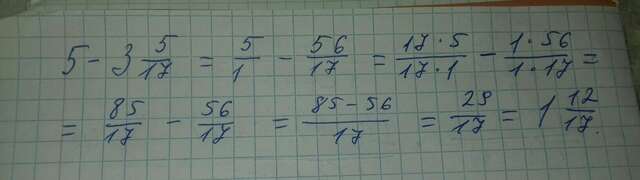 5 - 3 5/17 = 5/1 - 56/17 = 17·5/17·1 - 1·56/1·17 =
= 85/17 - 56/17 = 85-56/17 = 29/17 = 1 12/17.